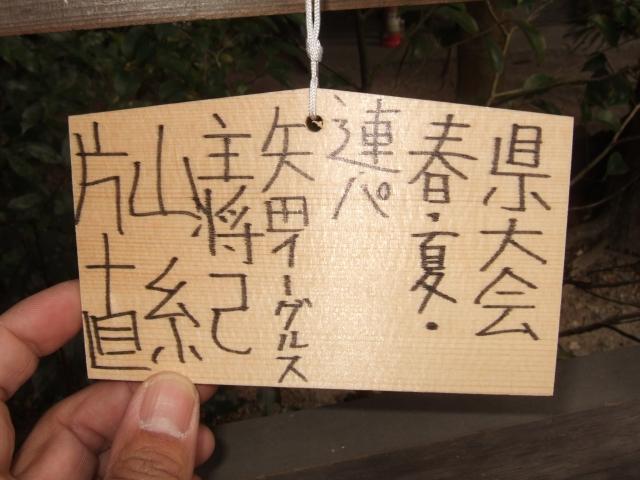 県大会
春・夏・
連パ
矢田イーグルス
主将
片山直紀